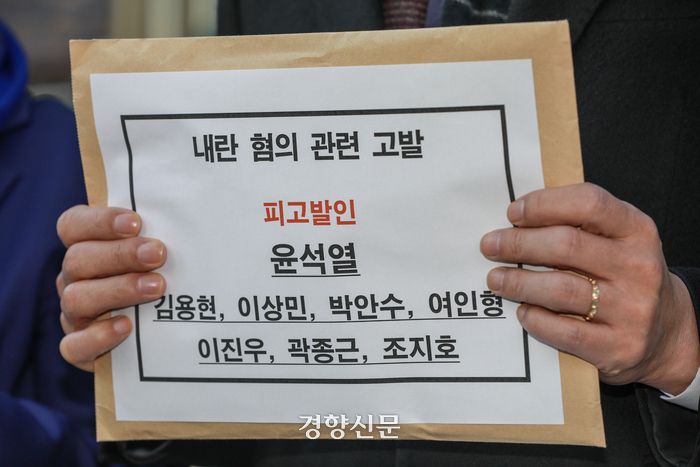 내란 혐의 관련 고발
피고발인
윤석열
김용현, 이상민, 박안수, 여인형
이진우, 곽종근, 조지호
경향신문